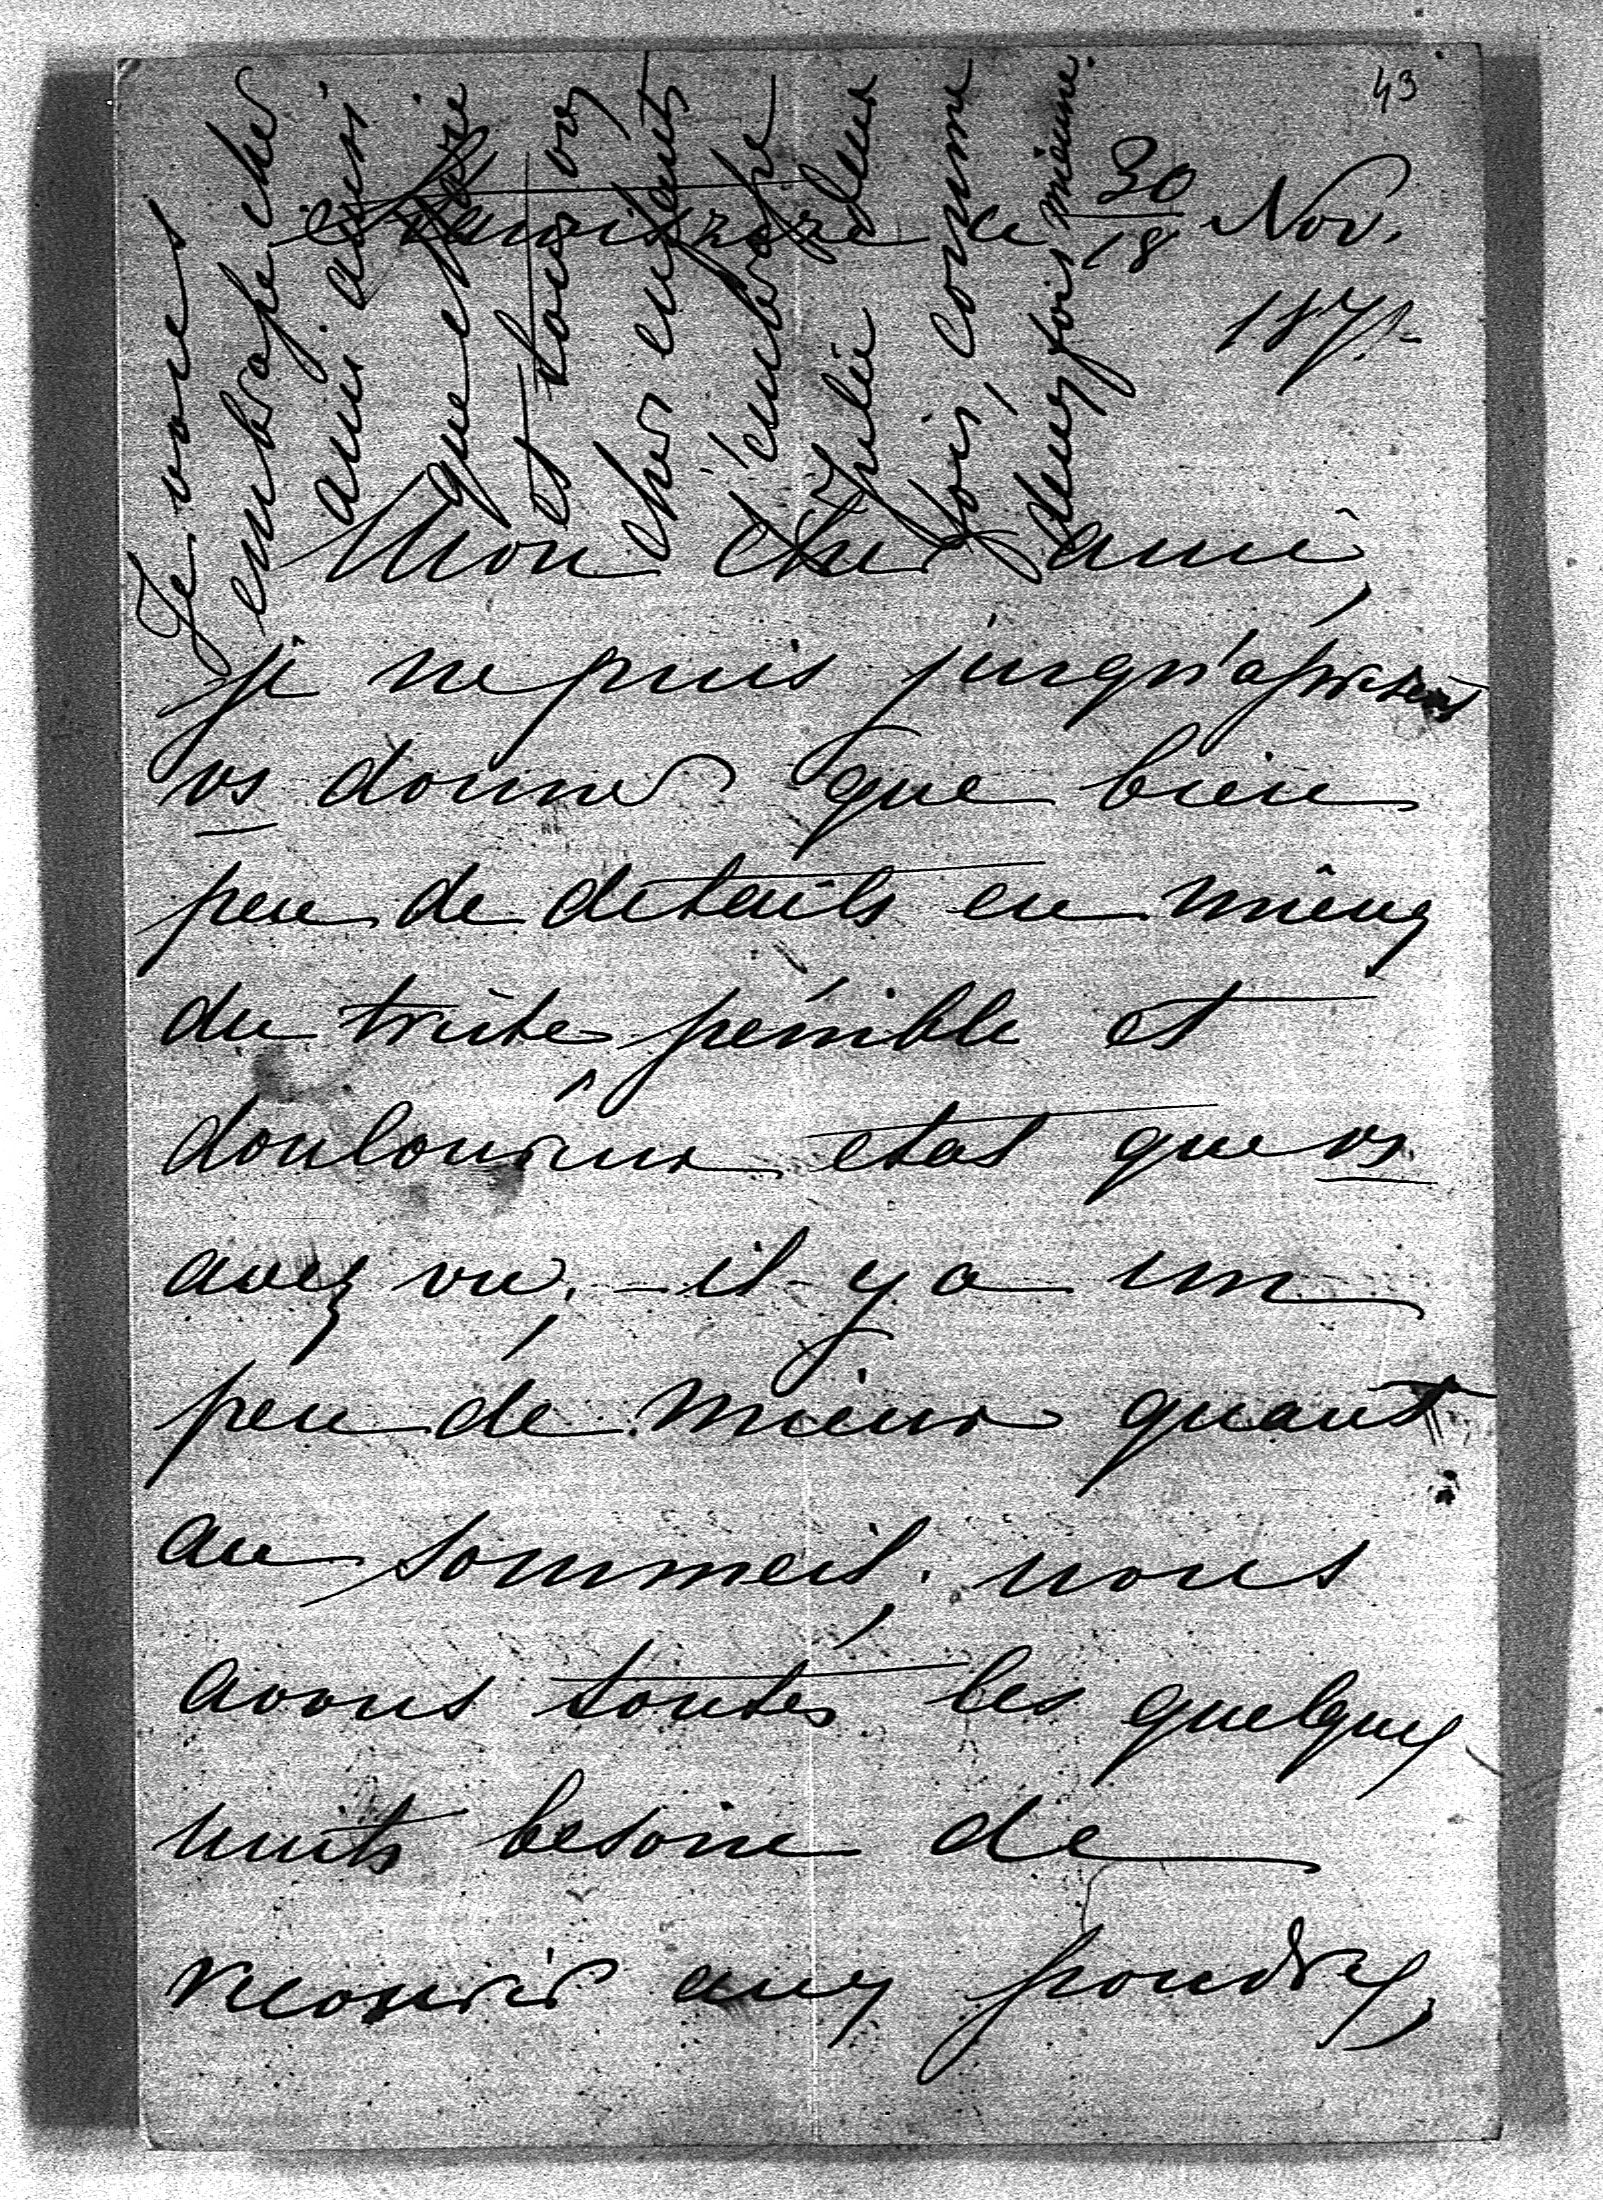 43
le 30/18 Nov.
187
Mon cher ami,
je ne puis jusqu'aprésent
vs donner que bien
peu de details en mieux
du triste, pénible et
douloureux etat que vs
avez vu, – il y a un
peu de mieux quant
au sommeil, nous
avons toutes les quelques
nuits besoin de
recourir aux poudres,
Je vous
embrasse cher
ami, ainsi
que
et tous vos
chers enfants
j'embrasse
Julie deux
fois, comme
deux fois mienne.